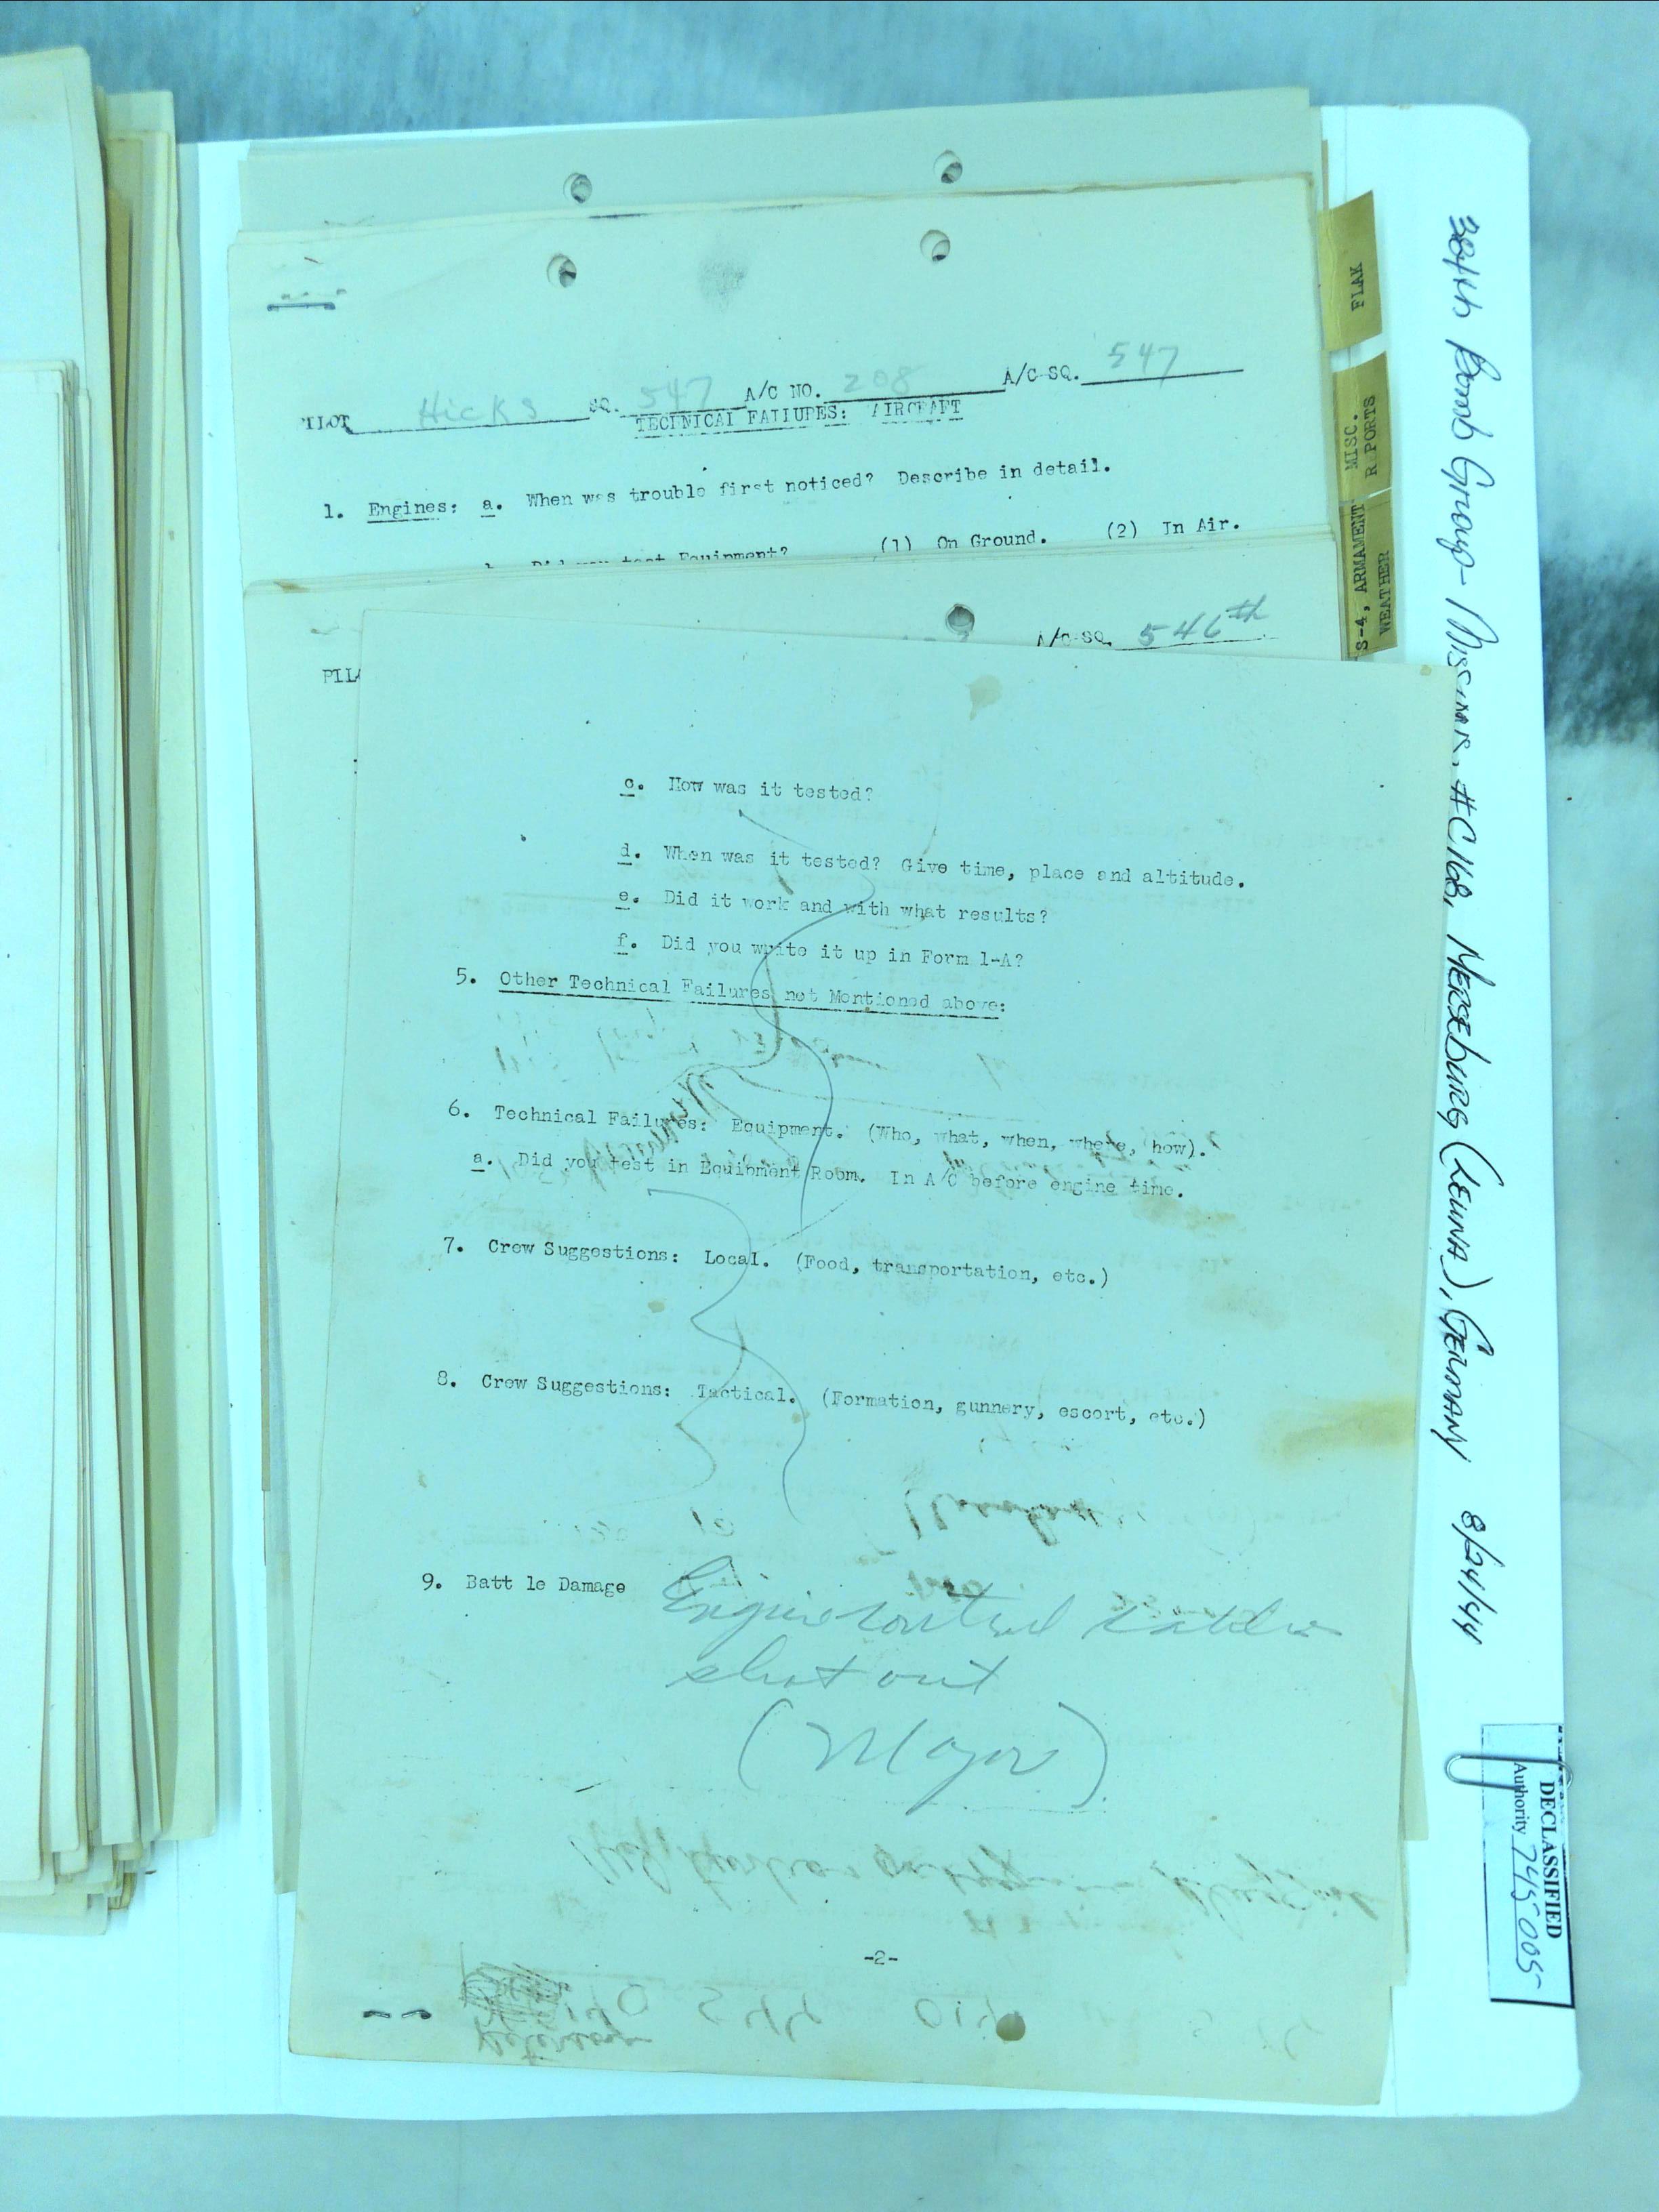 PILOT Hicks SQ. 547 A/C NO. 208 A/C SQ. 547
TECHNICAL FAILURES: AIRCRAFT
1. Engines: a. When was trouble first noticed? Describe in detail.
b. Did you test Equipment? (1) On Ground. (2) In Air.
A/C SQ. 546th
PIL
c. How was it tested?
d. When was it tested? Give time, place and altitude.
e. Did it work and with what results?
f. Did you write it up in Form 1-A?
5. Other Technical Failures not Mentioned above:
6. Technical Failures: Equipment. (Who, what, when, where, how).
a. Did you test in Equipment Room. In A/C before engine time.
7. Crew Suggestions: Local. (Food, transportation, etc.)
8. Crew Suggestions: Tactical. (Formation, gunnery, escort, etc.)
9. Batt le Damage Engine control
shot out
(Major)
-2-
FLAK
MISC.
R PORTS
S-4, ARMAMENT
WEATHER
384th Bomb Group - Mission #C168, MERSEBURG (LEUNA), GERMANY 8/24/44
DECLASSIFIED
Authority 745005